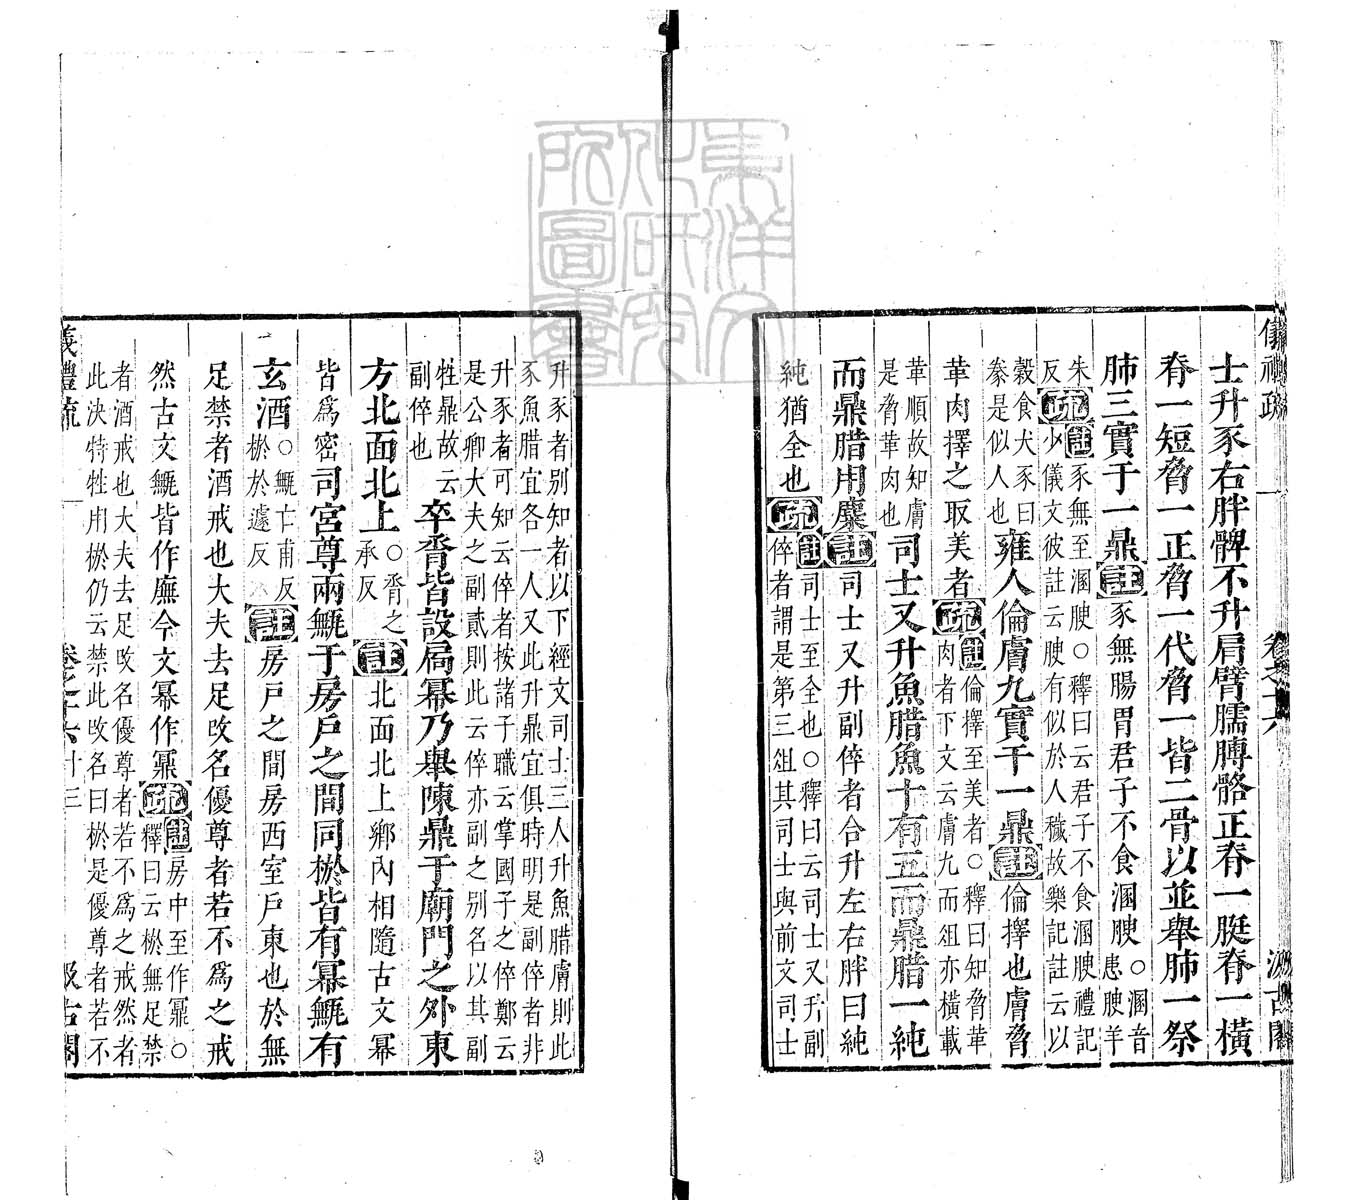 儀禮疏 卷之十六 汲古閣
士升豕右胖髀不升肩臂臑膊骼正脊一脡脊一橫
脊一短脅一正脅一代脅一皆二骨以並舉肺一祭
肺三實于一鼎註豕無腸胃君子不食溷腴○溷音
患腴羊
朱
反疏註豕無至溷腴○釋曰云君子不食溷腴禮記
少儀文彼註云腴有似於人穢故樂記註云以
穀食犬豕曰
豢是似人也雍人倫膚九實于一鼎註倫擇也膚脅
革肉擇之取美者疏註倫擇至美者○釋曰知脅革
肉者下文云膚九而俎亦橫載
革順故知膚
是脅革肉也司士又升魚腊魚十有五而鼎腊一純
而鼎腊用麋註司士又升副倅者合升左右胖曰純
純猶全也疏註司士至全也○釋曰云司士又升副
倅者謂是第三俎其司士與前文司士
升豕者別知者以下經文司士三人升魚腊膚則此
豕魚腊宜各一人又此升鼎宜俱時明是副倅者非
升豕者可知云倅者按諸子職云掌國子之倅鄭云
是公卿大夫之副貳則此云倅亦副之別名以其副
牲鼎故云
副倅也卒脀皆設扃冪乃舉陳鼎于廟門之外東
方北面北上○脀之
承反註北面北上鄉內相隨古文冪
皆爲密司宮尊兩甒于房戶之間同棜皆有冪甒有
玄酒○甒亡甫反
棜於遽反註房戶之間房西室戶東也棜無
足禁者酒戒也大夫去足攺名優尊者若不爲之戒
然古文甒皆作廡今文冪作鼏疏註房中至作鼏○
釋曰云棜無足禁
者酒戒也大夫去足攺名優尊者若不爲之戒然者
此決特牲用棜仍云禁此攺名曰棜是優尊者若不
儀禮疏 卷之十六 十三 汲古閣
東洋文化研究所圖書